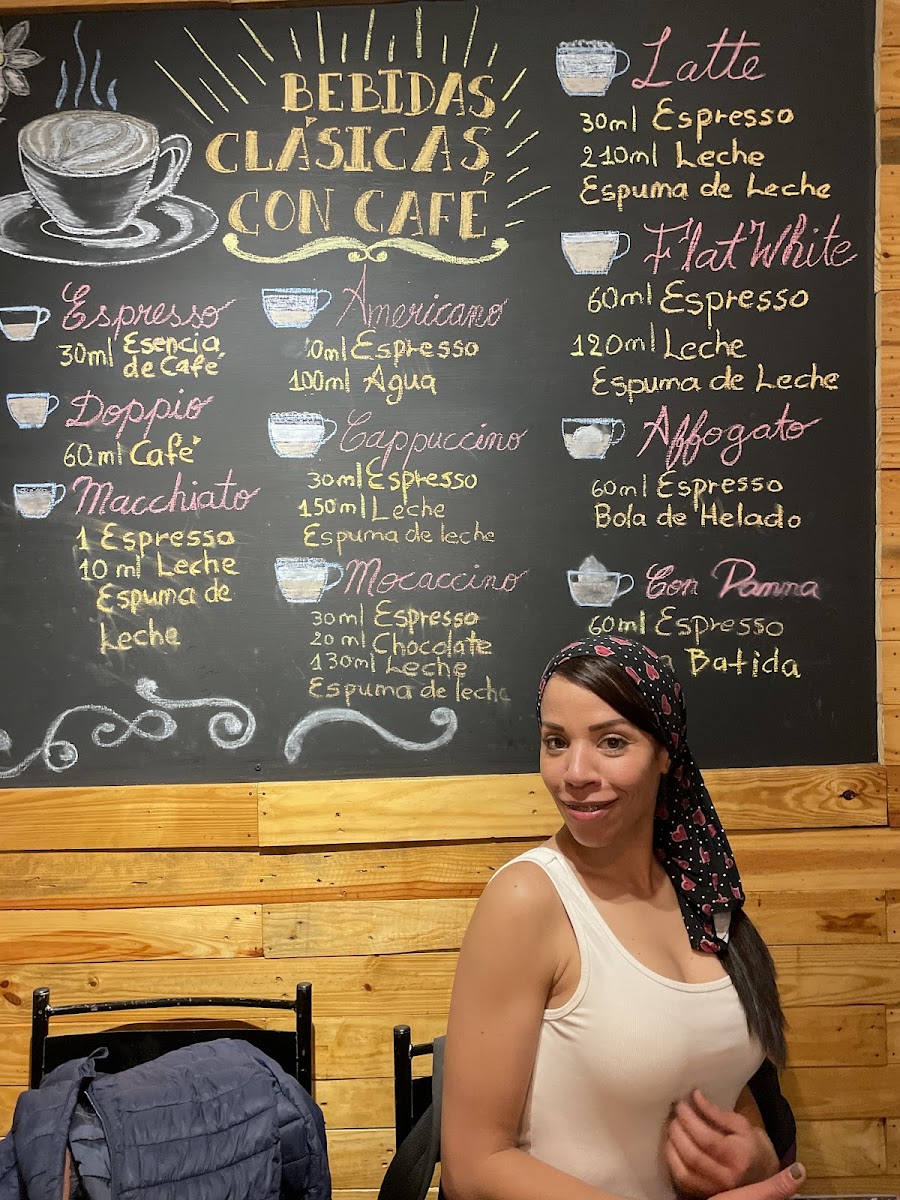 BEBIDAS
CLÁSICAS
CON CAFÉ
Espresso
30ml Esencia
de Café
Doppio
60ml Café
Macchiato
1 Espresso
10 ml Leche
Espuma de
Leche
Americano
Espresso
100ml Agua
Cappuccino
30ml Espresso
150ml Leche
Espuma de leche
Mocaccino
30ml Espresso
20ml Chocolate
130ml Leche
Espuma de leche
Latte
30ml Espresso
210ml Leche
Espuma de Leche
Flat White
60ml Espresso
120ml Leche
Espuma de Leche
Affogato
60ml Espresso
Bola de Helado
Con Panna
60ml Espresso
Batida